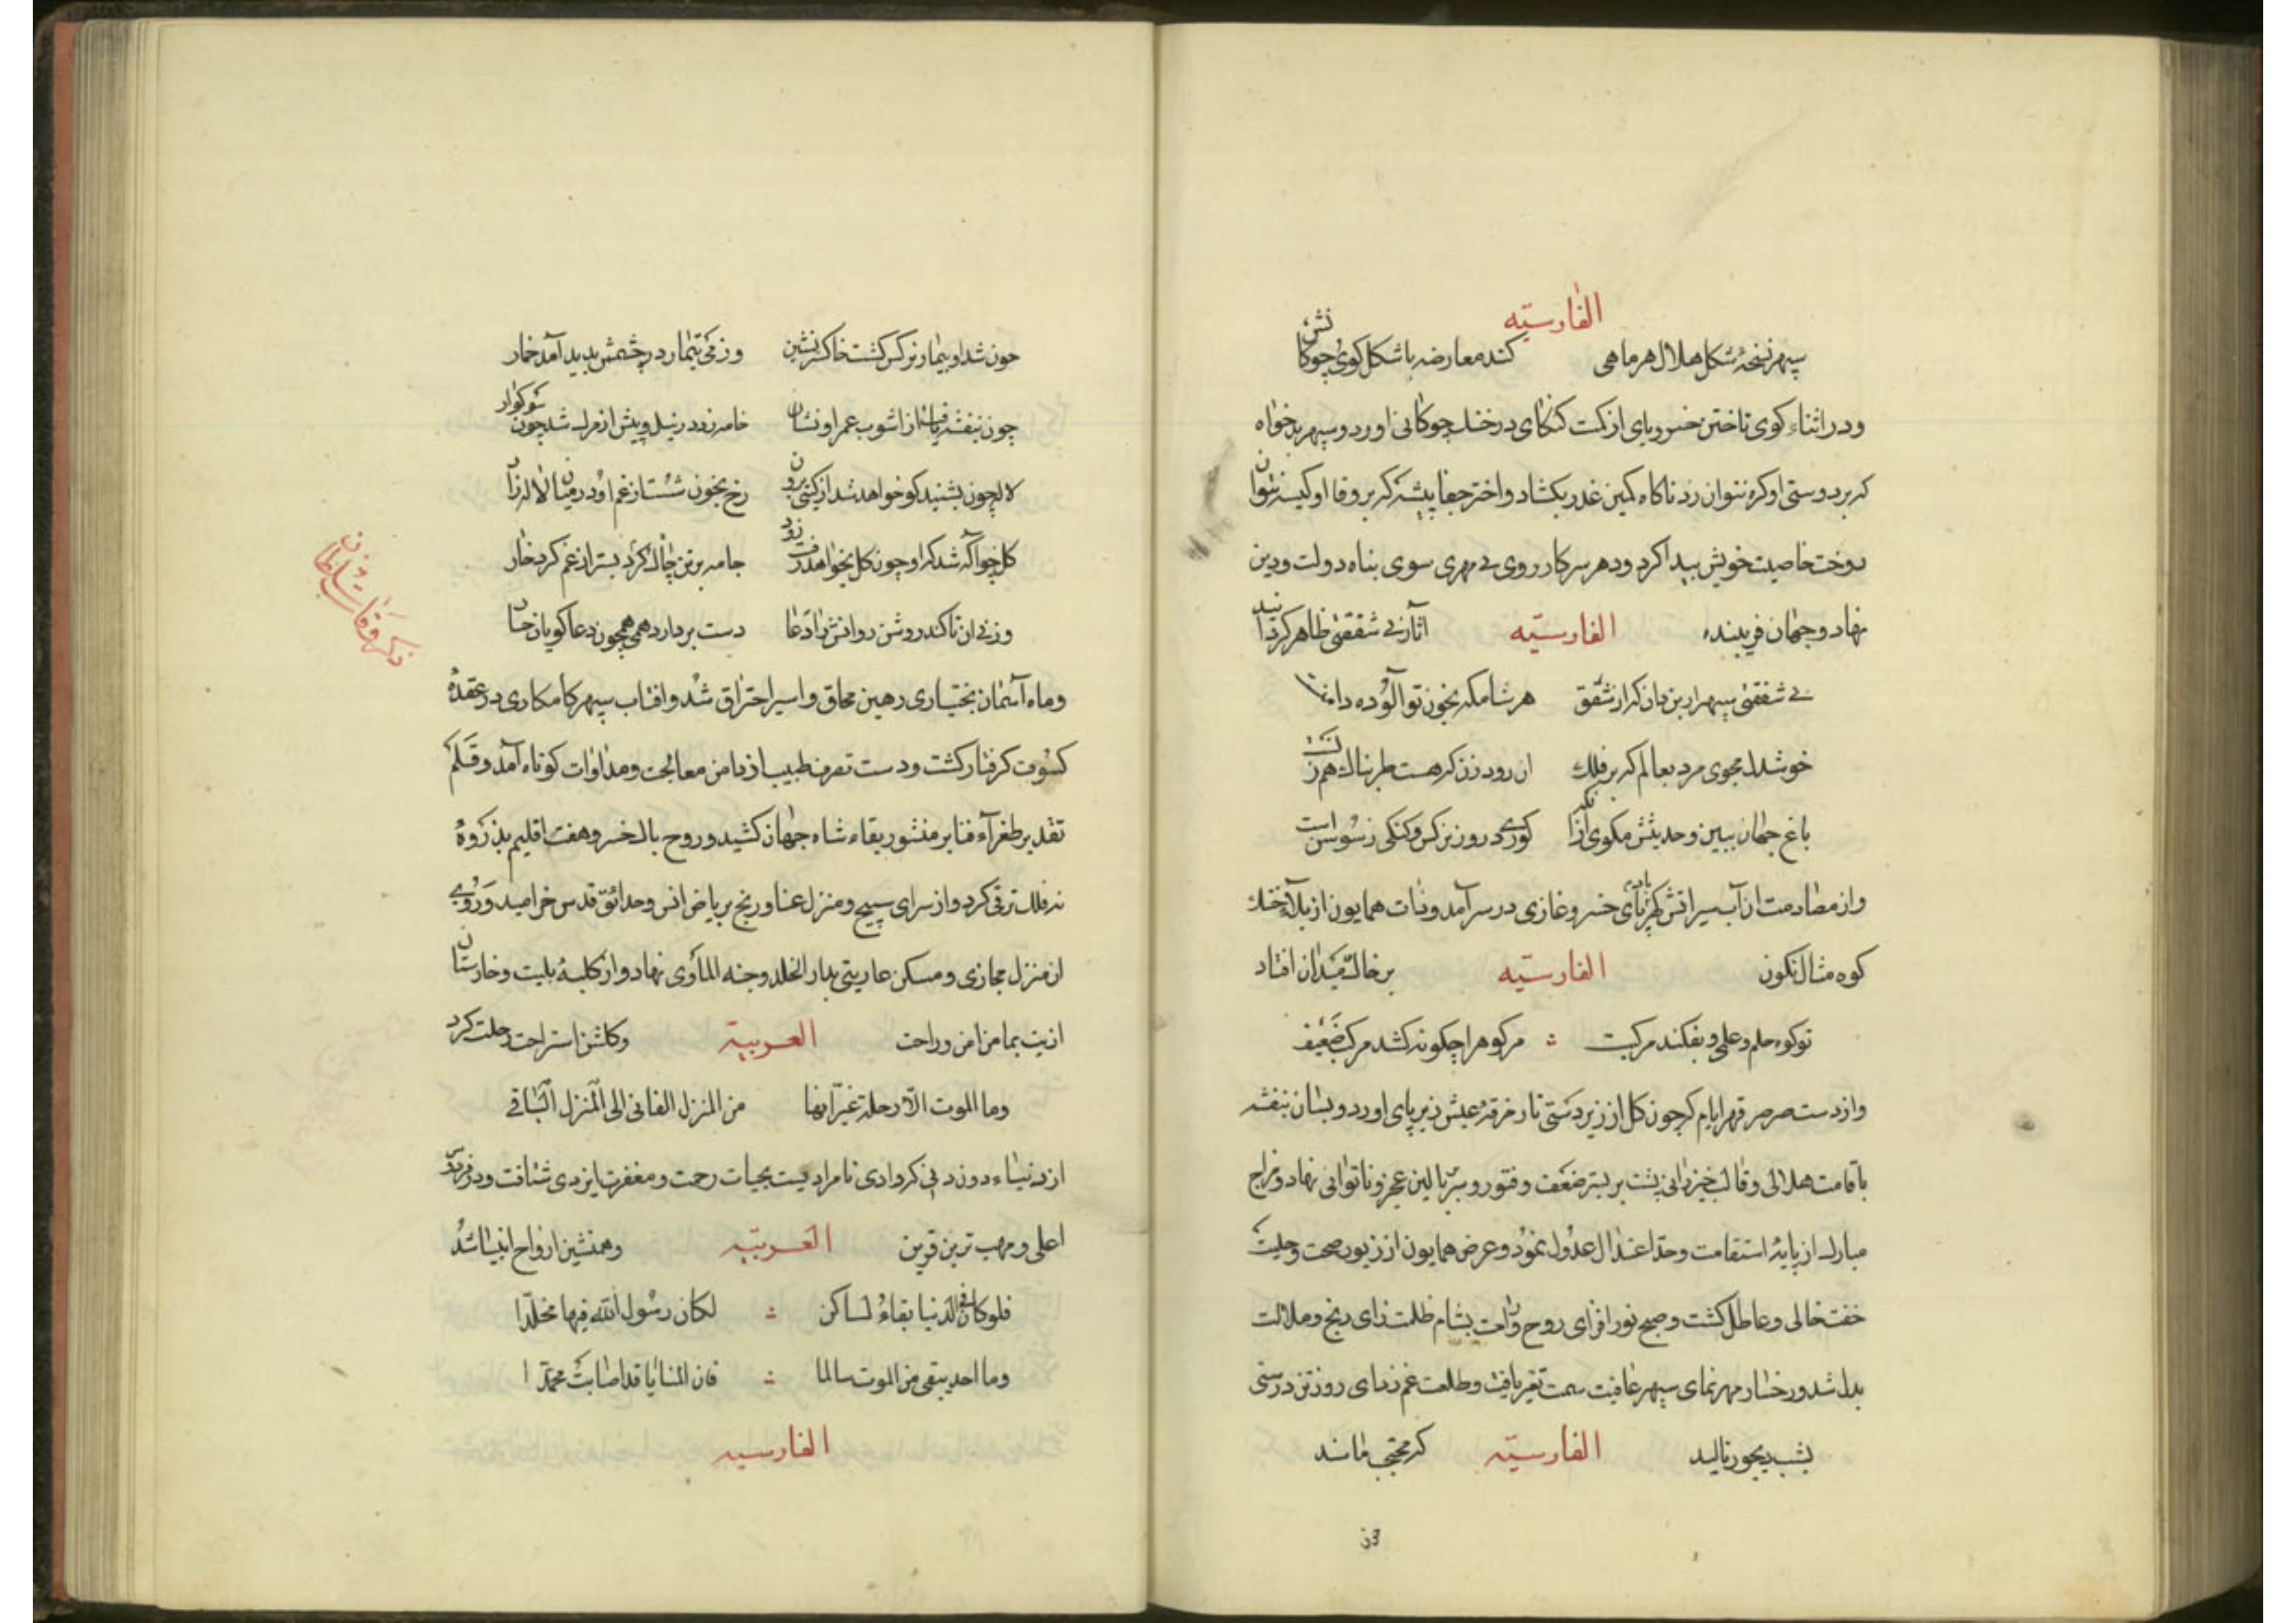 الفارسیّه
سپهر نسخهٔ شکل هلال هر ماهی کند معارضه با شکل کوی چوکانش
و در اثناء کوی تاختن خس ربای از کمت در خنک چوکانی اورد و سپهر بدخواه
که بر دوستی او کره نتوان زد ناکاه کمین غدر بکشاد و اختر جفا پیشه که بر وفا او کیسه نتوان
دوخت خاصیت خویش پیدا کرد و دهر سرکار روی بی مهری سوی پناه دولت و دین
نهاد و جهان فریبنده الفارسیّه آثار بی شفقتی ظاهر کردانید
بی شفقتی سپهر ازین دان که از شفق هر شامکه بخون تو آلوده دامن
خوشدل مجوی مرد بعالم که بر فلک ان رود زن که هست طربناک هم زنست
باغ جهان ببین و حدیثش مکوی از آنکه کوری در روز نرکس و کنکی ز سوسن است
و از مصادمت ان آب سیر اتش کهر بادپای خسرو غازی در سر آمد و ذات همایون از بلا خنک
کوه مثال نکون الفارسیّه بر خاک میدان افتاد
تو کوه حلم و علمی و بفکند مرکبت ∴ مر کوه را چکونه کشد مرکب ضعیف
و از دست صرصر قهر ایام که چون کل از زبردستی نار خرقهٔ عیش زیر پای اورد و بسان بنفشه
با قامت هلالی و قالب خیزرانی پشت بر بستر ضعف و فتور و سر بالین عجز و ناتوانی نهاد و مزاج
مبارک از پایهٔ استقامت و حد اعتدال عدول نمود و عرض همایون از زیور صحت و حلیت
خفت خالی و عاطل کشت و صبح نور افزای روح و راحت بشام ظلمت زای رنج و ملالت
بدل شد و رخسار مهر نمای سپهر عافیت سمت تغیر یافت و طلعت غم زدای روز تن درستی
بشب دیجور نالید الفارسیّه که مختجب ماند
چون شد او بیمار نرکس کشت خاکستر نشین وز می تیمار در چشمش بدید آمد خمار
چون بنفشه یافت از اشوب عمر او نشان خامه زد در نیل و پیش از مرک شد چون سوکوار
لاله چون بشنید کو خواهد شد از کیتی برون رخ بخون شست از غم او در میان لاله زار
کل چو آکه شد که او چون کل بخواهد رفت زود جامه بر تن چاک کرد بستر از غم کرد خار
وز پی ان تا کند روشن روانش را دعا دست بردارد همی همچون دعا کویان چنار
و ماه آسمان بختیاری رهین محاق و اسیر احتراق شد و افتاب سپهر کامکاری در عقدهٔ
کسوف کرفتار کشت و دست تصرف طبیب از دامن معالجت و مداوات کوتاه آمد و قلم
تقدیر طغرآء فنا بر منشور بقاء شاه جهان کشید و روح پاک خسرو هفت اقلیم بذروهٔ
نه فلک ترقی کرد و از سرای سپنج و منزل عنا و رنج بریاض انس و حدائق قدس خرامید و روی
از منزل مجازی و مسکن عاریتی بدار الخلد و جنه المأوی نهاد و از کلبهٔ بلیت و خارستان
اذیت بمامن امن و راحت العربیّة و کلشن استراحت رحلت کرد
وما الموت الّا رحلة غیر انها من المنزل الفانی الی المنزل الباقی
از دنیاء دون دنی که وادی نامرادیست بحیات رحمت و مغفرت ایزدی شتافت و در فردوس
اعلی و مهب ترین قرین العربیّه و همنشین ارواح انبیا شد
فلو کان فی الدنیا بقاءُ لساکن ∴ لکان رسول الله فیها مخلّدا
وما احد یبقی من الموت سالما ∴ فان المنایا قد اصابت محمّدا
الفارسیه
ذکر وفات سلطان